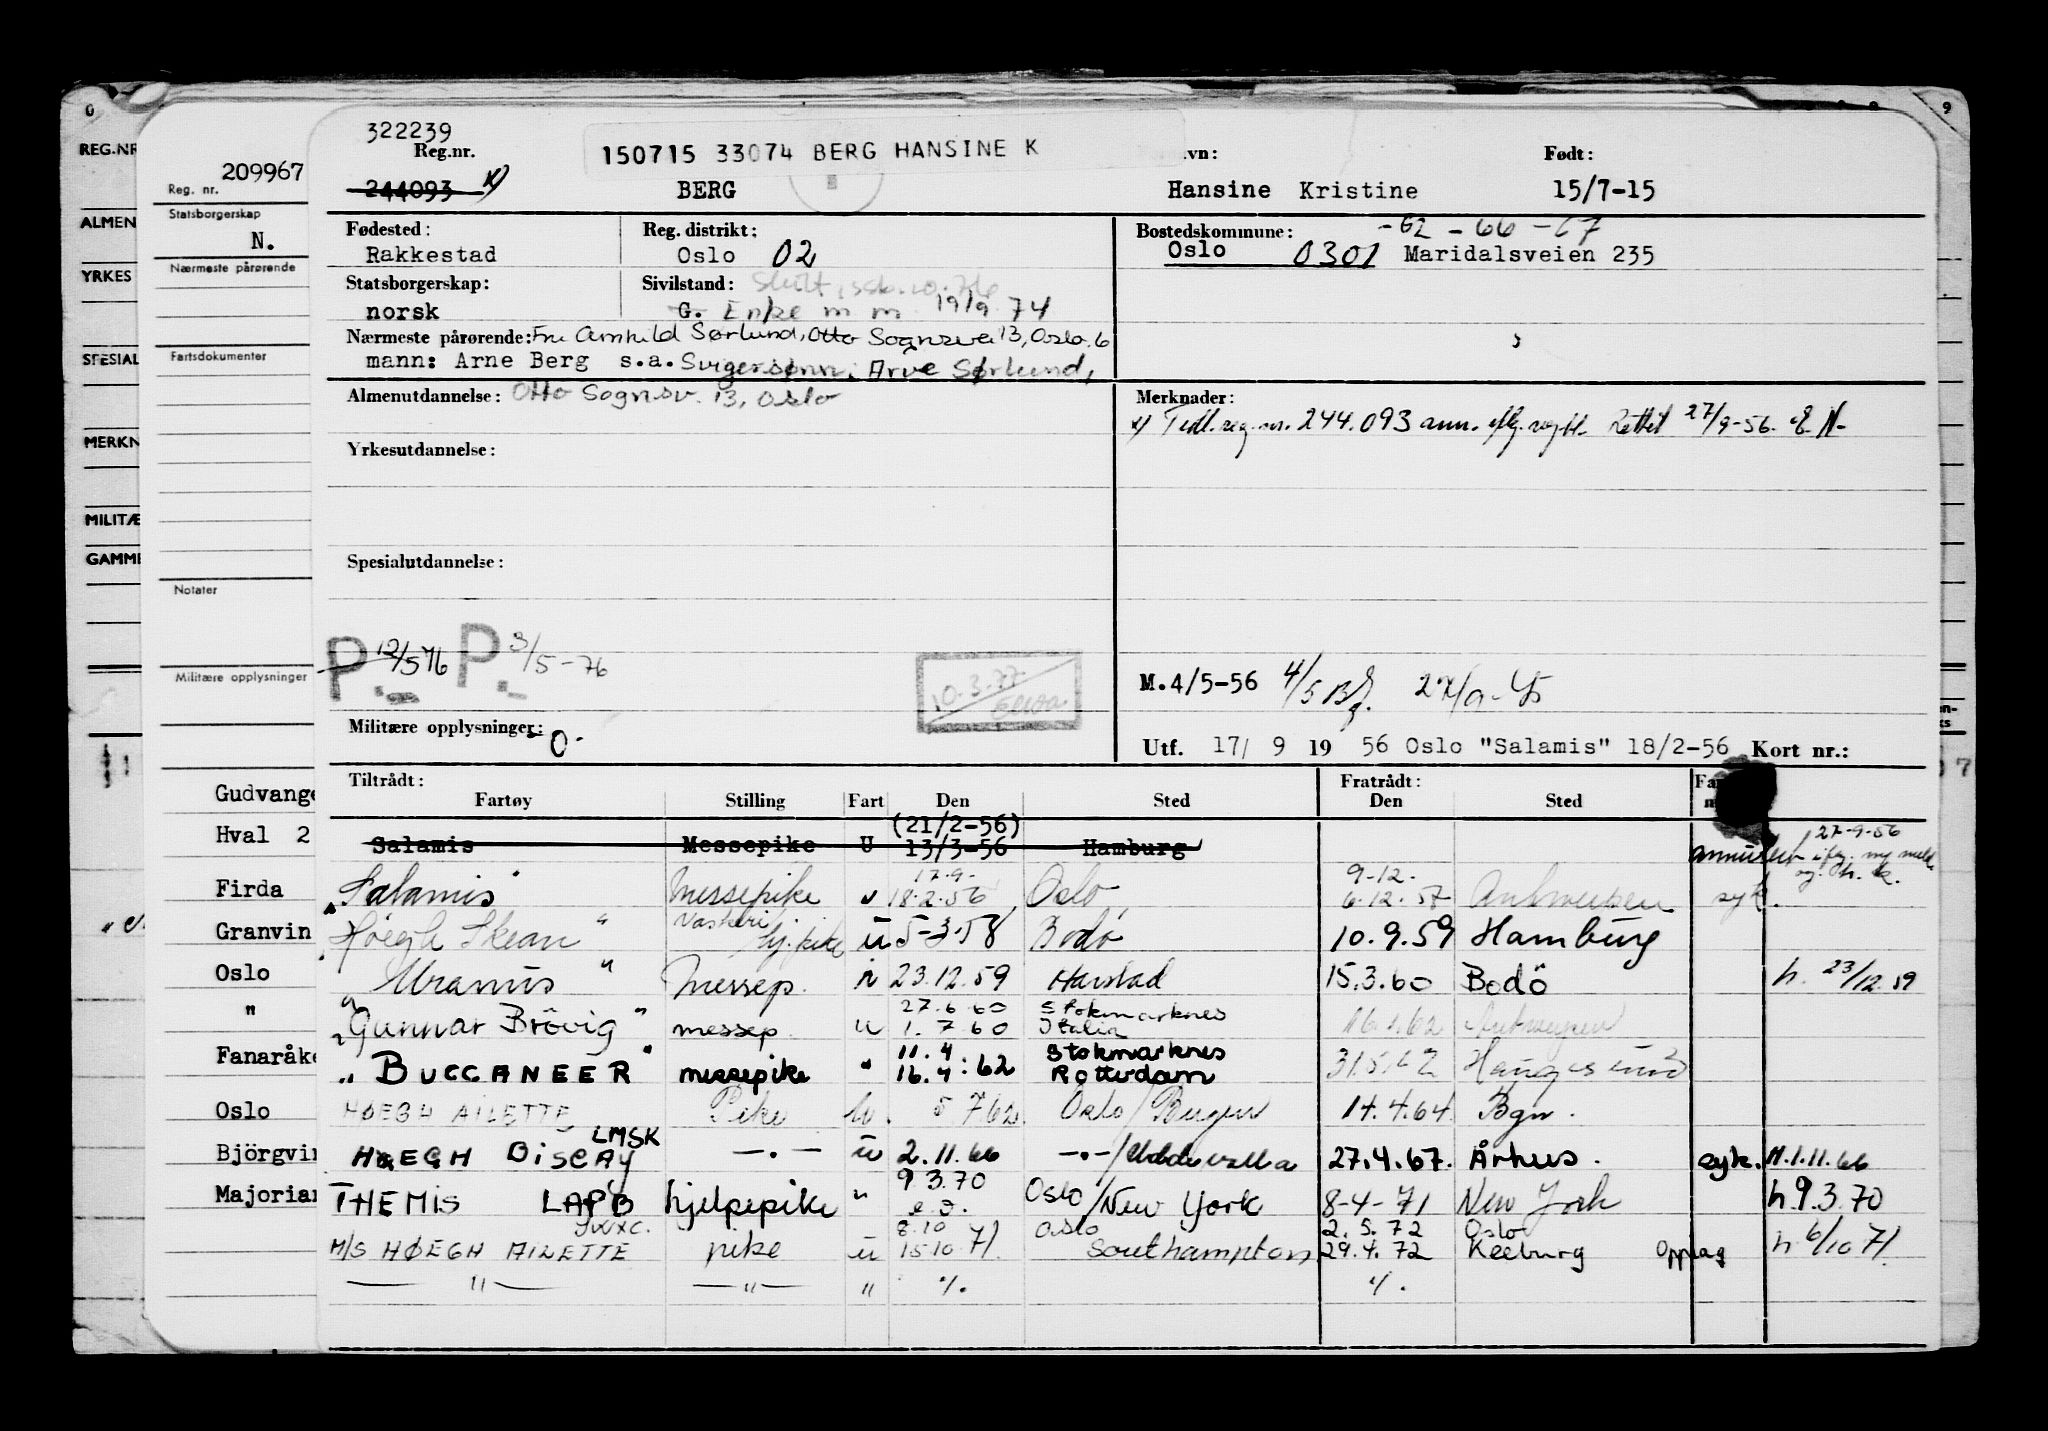 322239
Reg.nr.
244093 x)
150715 33074 BERG HANSINE K
BERG
vn:
Hansine Kristine
Født:
15/7-15
Fødested:
Rakkestad
Reg. distrikt:
Oslo 02
Bostedskommune: -62 -66 -67
Oslo 0301 Maridalsveien 235
Statsborgerskap:
norsk
Sivilstand:
G. Enke m m 19/9 74
Nærmeste pårørende: Fru Arnhild Sørlund, Otto Sognsvei 13, Oslo. 6
mann: Arne Berg s.a. Svigersønn: Arve Sørlund,
Almenutdannelse: Otto Sognsv. 13, Oslo
Merknader:
x) Tidl. reg. nr. 244.093 ann. Rettet 27/9-56.
Yrkesutdannelse:
Spesialutdannelse:
P 12/5 76 P 3/5-76
10.3.77
M.4/5-56 4/5
Militære opplysninger: -0-
Utf. 17/ 9 19 56 Oslo "Salamis" 18/2-56 Kort nr.:
Tiltrådt:
Fratrådt:
Fartøy Stilling Fart Den Sted Den Sted
(21/2-56)
Salamis Messepike U 13/3-56 Hamburg
27-9-56
17.9.
9-12.
"Salamis" Messepike 18.2.56 Oslo 6.12.57 Antwerpen syk.
Høegh Skean " Vaskeri hj.pike u 5-3-58 Bodö 10.9.59 Hamburg
Uranus " Messep. 23.12.59 Harstad 15.3.60 Bodö h. 23/12.59
27.6.60 Stokmarknes
"Gunnar Brövig" messep. u 1.7.60 Italia 62 Antwerpen
11.4 Stokmarknes
"BUCCANEER" messepike " 16.4:62 Rotterdam 31.5.62 Haugesund
HØEGH AILETTE Pike 5 7 62 Oslo/Bergen 14.4.64 Bgn.
LMSK
HØEGH BISCAY —.— u 2.11.66 —.—/Uddevalla 27.4.67. Århus. syk. M.1.11.66
9 3.70
THEMIS LAPB hjelpepike " Oslo/New York 8-4-71 New York h.9.3.70
8.10 Oslo 2.5.72 Oslo
M/S HØEGH AILETTE pike u 15.10.71. Southampton 29.4.72 Keeburg Opplag h 6/10 71.
— " — — " — "
0
REG.NR
ALMEN
YRKES
SPESIAL
MERKN
MILITÆ
GAMME
209967
Reg. nr.
Statsborgerskap
N.
Nærmeste pårørende
Fartsdokumenter
Notater
Militære opplysninger
Gudvange
Hval 2
Firda
Granvin
Oslo
"
Fanaråke
Oslo
Björgvin
Majorian
9
7